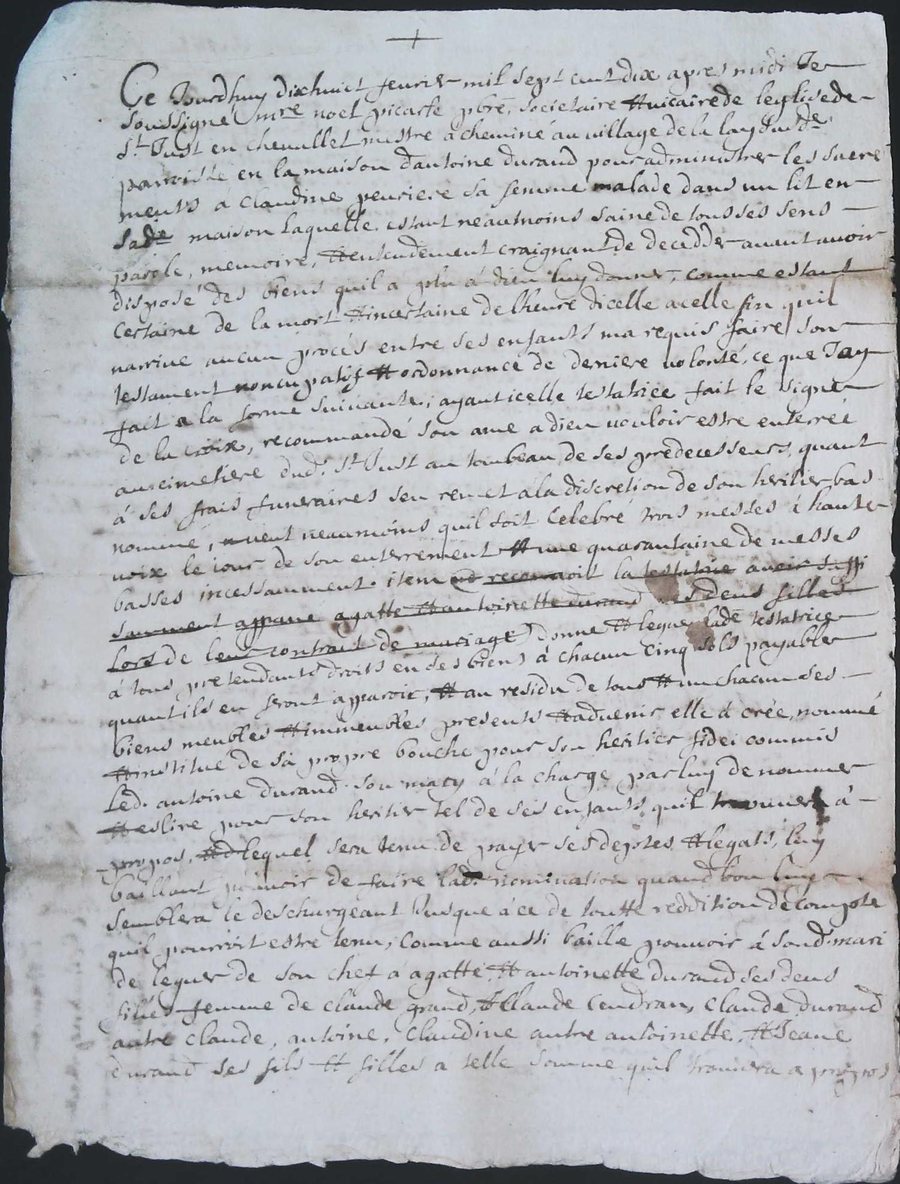 Ce Jourdhuy dixhuict fevrier mil sept cent dix apres midi Je
soussigné mre noel picarle pbre, societaire et vicaire de leglise de
St Just en chevallet m'estre acheminé au village de la lay dud.
parroisse en la maison dantoine durand pour administrer les sacre
ments á Claudine periere sa femme malade dans un lit en
sad. maison laquelle estant neaumoins saine de tous ses sens
parole, memoire, et entendement craignant de decedder avant avoir
disposé des biens quil a plu á dieu luy donner, comme estant
Certaine de la mort et incertaine de lheure dicelle a celle fin quil
narrive aucun procés entre ses enfants ma requis faire son
testament noncupatif et ordonnance de derniere volonté, ce que Jay
fait a la forme suivante, ayant icelle testatrice fait le signe
de la croix, recommandé son ame a dieu vouloir estre enterreé
au cimetiere dud. St Just au tombeau de ses predecesseurs, quant
á ses frais funeraires sen remet a la discretion de son heritier bas
nommé, veut neaumoins quil soit Celebré trois messes á haute
voix le jour de son enterrement et une quarantaine de messes
basses incessamment. item reconnoit la testatrice avoir suffi
samment appané agatte et antoinette durand ses deus filles
lors de leur contrait de mariage donne et legue lade testatrice
á tous pretendants droits en ses biens á chacun Cinq sols payable
quant ils en feront apparoir, et au residu de tous et un chacun ses
biens meubles et immeubles presents et advenir elle á crée, nommé
et institué de sa propre bouche pour son heritier fidei commis
Led. antoine durand son mary á la charge par luy de nommer
et eslire pour son heritier tel de ses enfants quil trouvera á
propos, lequel sera tenu de payer ses deptes et legats, luy
baillant pouvoir de faire lad. nomination quand bon luy
semblera le deschargeant Jusque á ce de toutte reddition de compte
quil pourroit estre tenu, Comme aussi baille pouvoir á sond. mari
de leguer de son chef á agatte et antoinette durand ses deus
filles femme de claude grand, et Claude Cendran, Claude durand
autre claude, antoine, Claudine autre antoinette, et Jeane
durand ses fils et filles a telle somme quil trouvera a propos